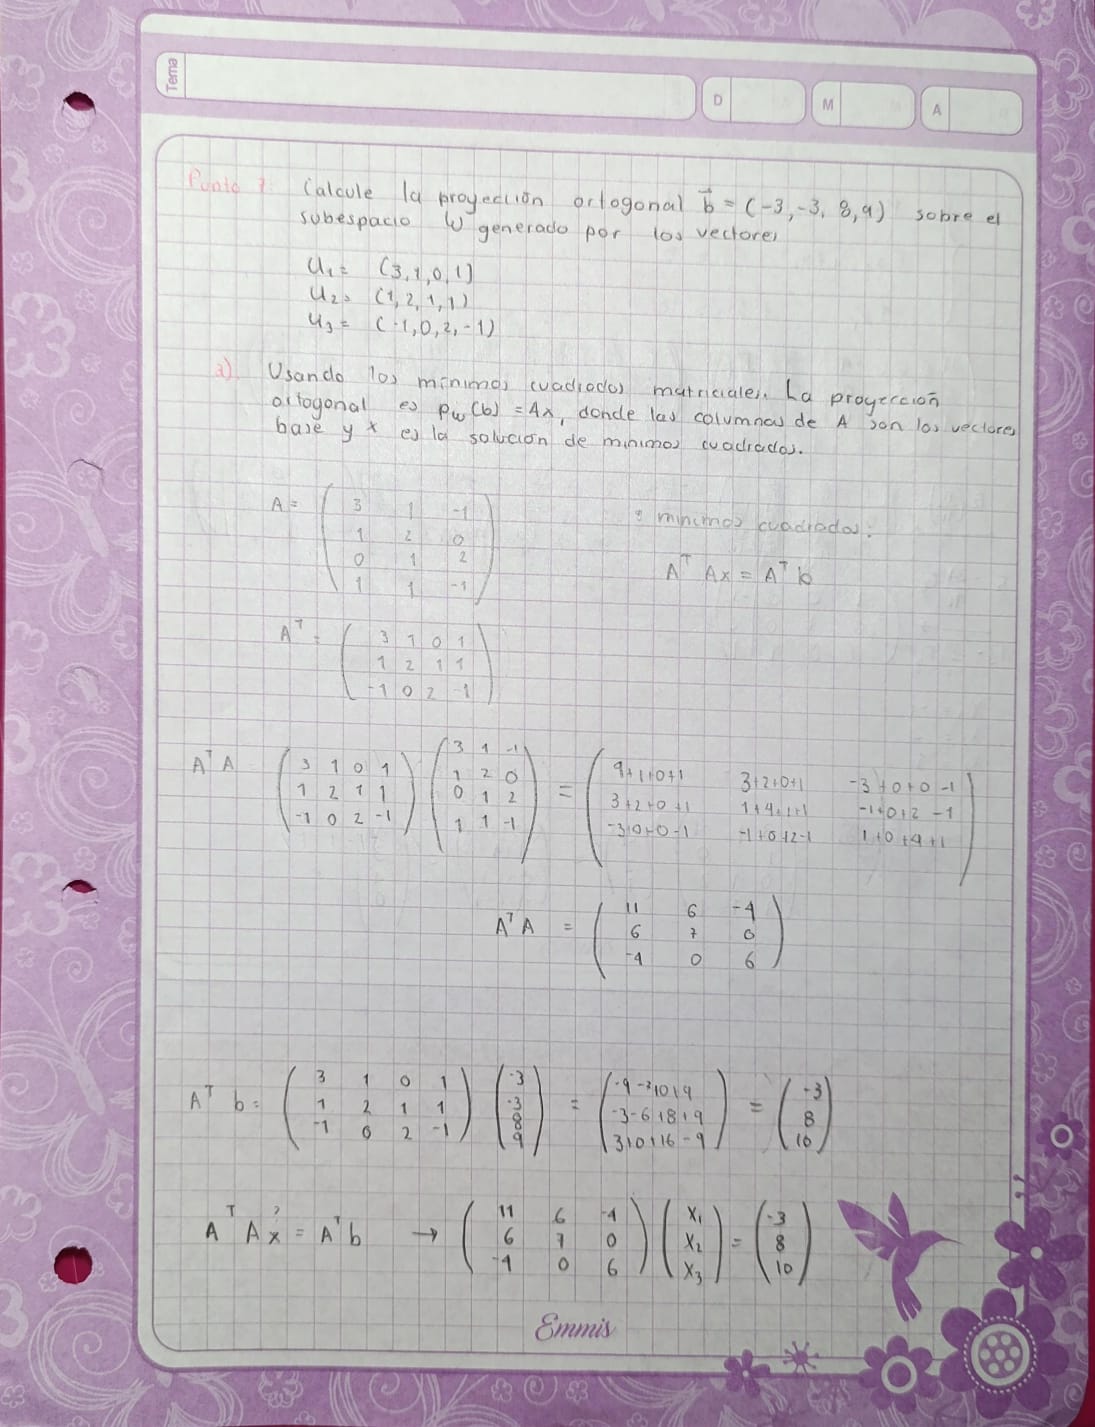 Tema
D
M
A
Punto 7 Calcule la proyección ortogonal b⃗ = (-3,-3, 8,9) sobre el
subespacio W generado por los vectores
U₁= (3,1,0,1)
U₂= (1,2,1,1)
U₃= (-1,0,2,-1)
a) Usando los mínimos cuadrados matriciales. La proyección
ortogonal es Pw(b) = Ax, donde las columnas de A son los vectores
base y x es la solución de mínimos cuadrados.
A = ( 3 1 -1
1 2 0
0 1 2
1 1 -1 )
: minimos cuadrados:
Aᵀ Ax = Aᵀ b
Aᵀ = ( 3 1 0 1
1 2 1 1
-1 0 2 -1 )
Aᵀ A ( 3 1 0 1
1 2 1 1
-1 0 2 -1 ) ( 3 1 -1
1 2 0
0 1 2
1 1 -1 ) = ( 9+1+0+1 3+2+0+1 -3+0+0-1
3+2+0+1 1+4+1+1 -1+0+2-1
-3+0+0-1 -1+0+2-1 1+0+4+1 )
Aᵀ A = ( 11 6 -4
6 7 0
-4 0 6 )
Aᵀ b = ( 3 1 0 1
1 2 1 1
-1 0 2 -1 ) ( -3
-3
8
9 ) = ( -9-3+0+9
-3-6+8+9
3+0+16-9 ) = ( -3
8
10 )
Aᵀ A x̂ = Aᵀ b → ( 11 6 -4
6 7 0
-4 0 6 ) ( X₁
X₂
X₃ ) = ( -3
8
10 )
Emmis